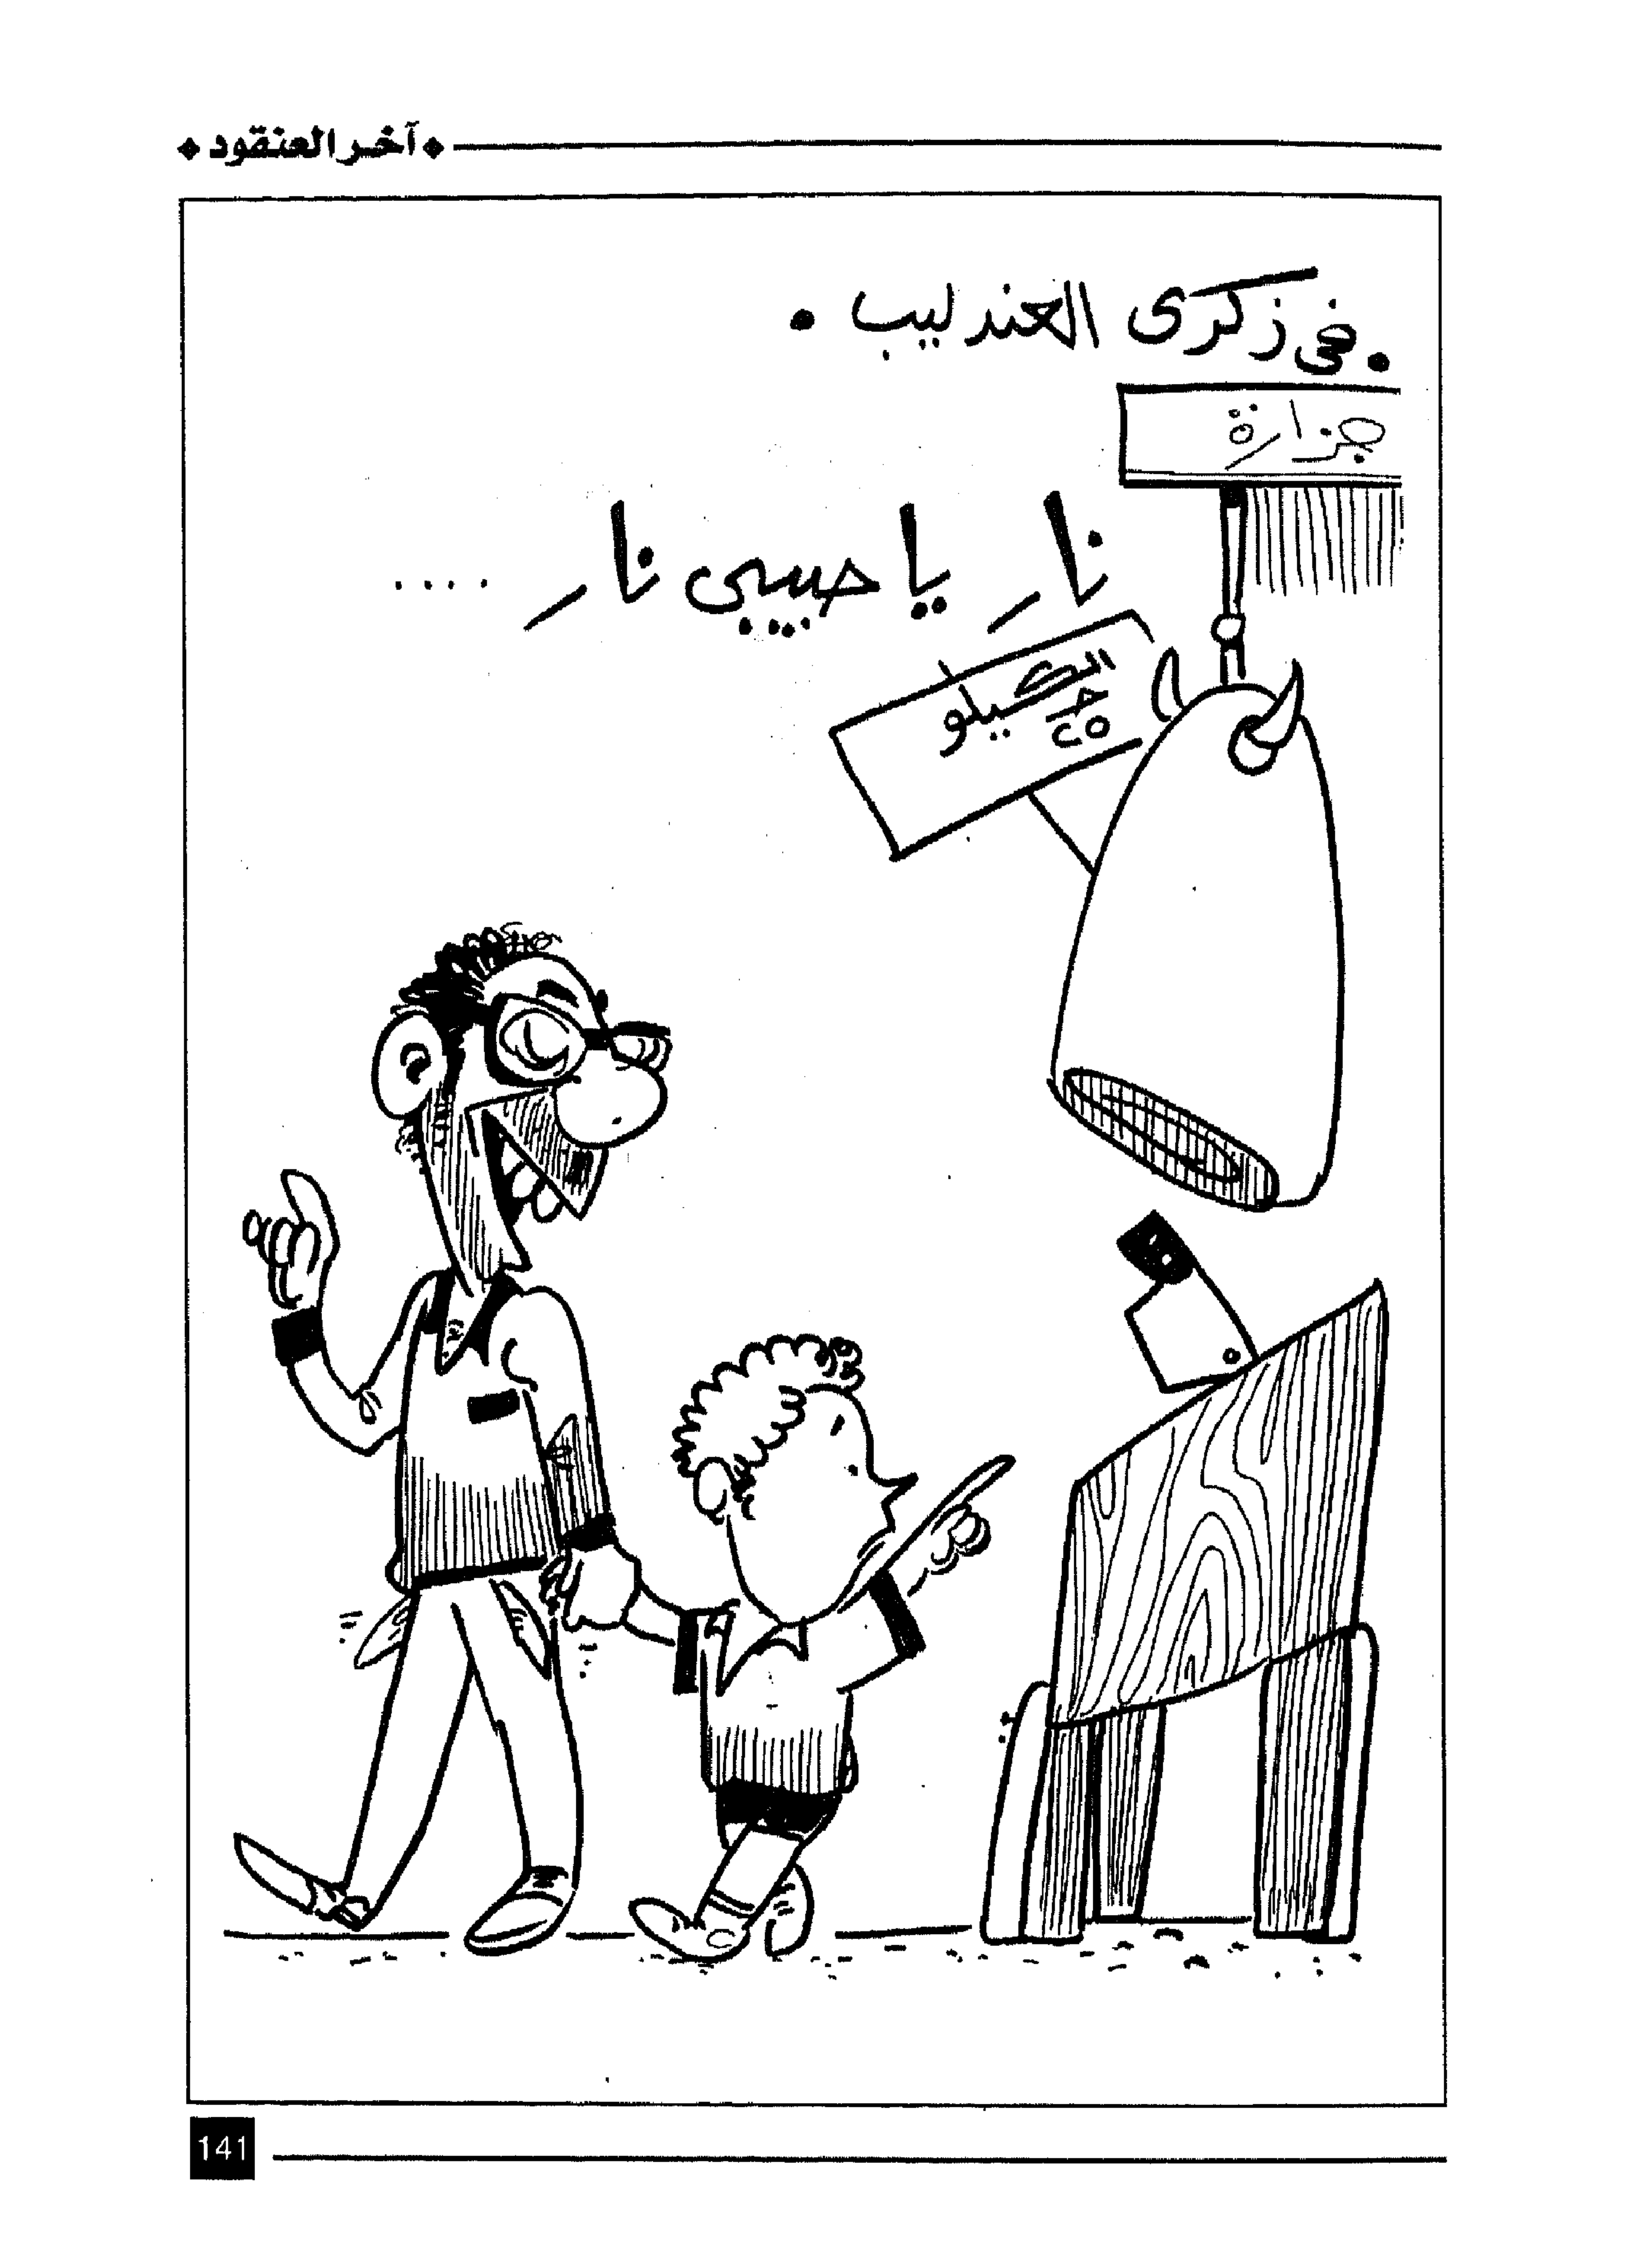 آخر العنقود
في ذكرى العندليب
جزارة
نار يا حبيبي نار ....
الكيلو
٢٥ جـ
141